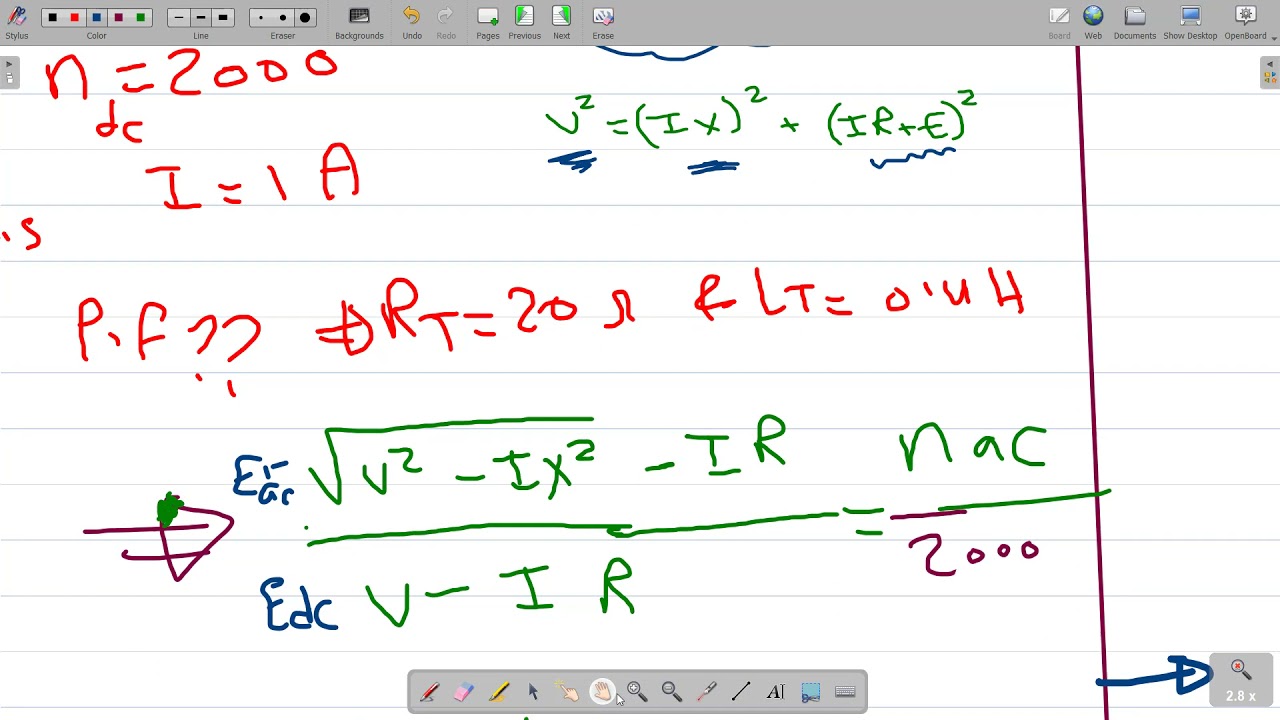 Stylus Color Line Eraser Backgrounds Undo Redo Pages Previous Next Erase Board Web Documents Show Desktop OpenBoard
n = 2000
dc
V² = (I X)² + (IR+E)²
I = 1 A
.s
P.F ?? ⇒ RT = 20 Ω & LT = 0.4 H
Eac √V² - IX² - IR = nac
2000
Edc V - I R
AI
2.8 x